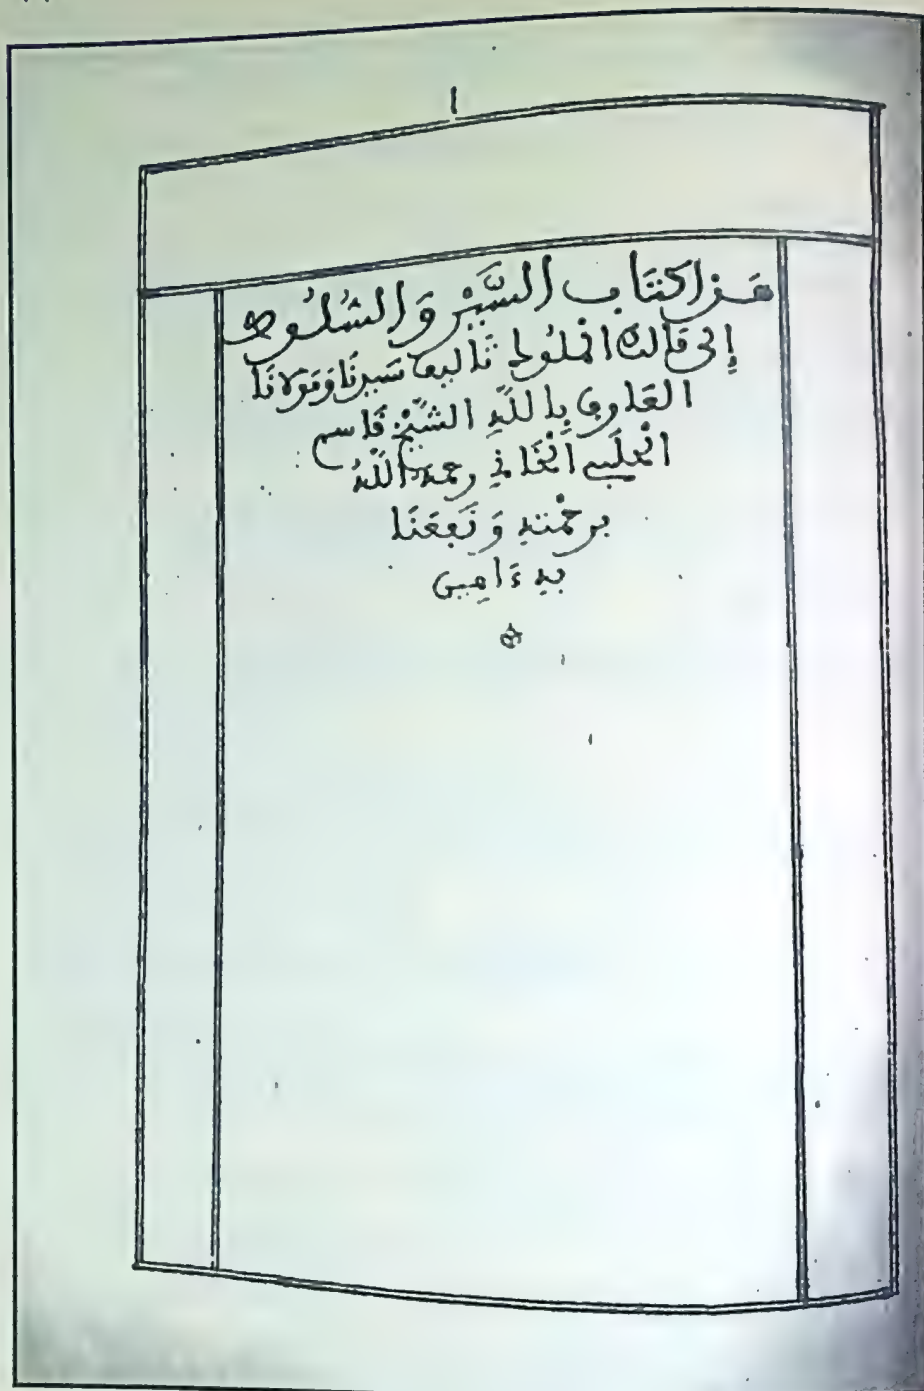 ١
هَذا كِتَاب السَّيْر وَالسُّلُوك
إلى مَالك الْمُلُوك تَاليف سَيدنَا وَمَوْلانَا
العَارف بِاللَّهِ الشَّيْخ قَاسم
الْحلَبي الْخَاني رحمه اللَّهُ
برحْمته وَنَفعَنَا
به ءَامين